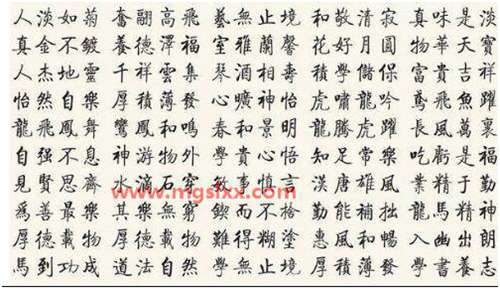 人淡如菊 奮翮高飛 藝無止境 和敬清寂 真味是淡
真金不鍍 養德澤福 室雅蘭馨 花好月圓 物華天寶
人杰地靈 千祥雲集 琴 學儲 富貴吉祥
怡然自樂 厚積薄發 曠神怡 虎嘯龍吟 鳶飛魚躍
龍飛鳳舞 鸞鳳和鳴 春和景明 龍騰虎躍 長風萬裏
自强不息 神游物外 學貴心悟 知足常樂 吃虧是福
見賢思齊 水滴石穿 敏事慎言 漢唐雄風 業精于勤
www.mgslxx.com
爲善最樂 其樂無窮 鍥而不捨 勤能補拙 龍馬精神
厚德載物 難得糊塗 惠風和暢 入幽出朗
馬到功成 道法自然 學無止境 厚積薄發 學書養志